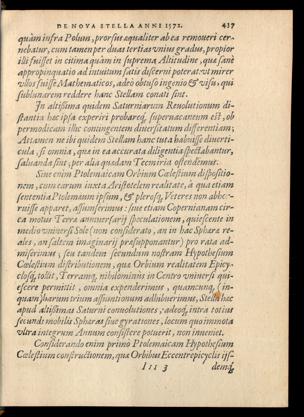 DE NOVA STELLA ANNI 1572. 437
quàm infra Polum, prorsus æqualiter ab ea removeri cer-
nebatur, cum tamen per duas tertias unius gradus, propior
illi fuisset in citima quàm in suprema Altitudine, qua sanè
appropinquatio ad intuitum satis discerni poterat: ut mirer
ullos fuisse Mathematicos, adeo obtuso ingenio & visu, qui
sublunarem reddere hanc Stellam conati sint.
In altissima quidem Saturniarum Revolutionum di-
stantia hæc ipsa experiri probareq́; supervacaneum est, ob
permodicam illic contingentem diversitatum differentiam;
Attamen ne ibi quidem Stellam hanc tuta habuisse diverti-
cula, si omnia, qua in ea accurata diligentia spectabantur,
salvanda sint, per alia quædam Tecmiria ostendimus.
Sive enim Ptolemaicam Orbium Cælestium dispositio-
nem, cum earum iuxta Aristotelem realitate, à qua etiam
sententia Ptolemæum ipsum, & plerosq; Veteres non abho-
ruisse apparet, assumserimus: sive etiam Copernianam cir-
ca motus Terra anniversarij speculationem, quiescente in
medio universi Sole (non considerato, an in hac Sphæra re-
ales, an saltem imaginarij præsupponantur) pro rata ad-
miserimus, seu tandem secundum nostram Hypothesium
Cælestium distributionem, qua Orbium realitatem Epicy-
closq; tollit, Terramq; nihilominus in Centro universi qui-
escere permittit, omnia expenderimus, quamcunq; in-
quam harum trium assumtionum adhibuerimus, Stella hæc
apud altissimas Saturni convolutiones, adeoq; intra totius
secundi mobilis Sphæras sive gyrationes, locum quo immota
ultra integrum Annum consistere potuerit, non inveniet.
Considerando enim primò Ptolemaicam Hypothesium
Cælestium constructionem, qua Orbibus Eccentrepicyclis ijs-
Iii 3 demq́;